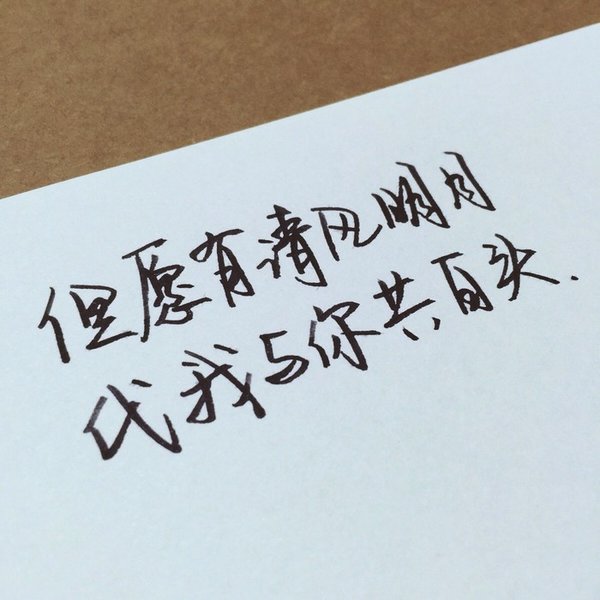 但愿有清风明月
代我与你共白头.